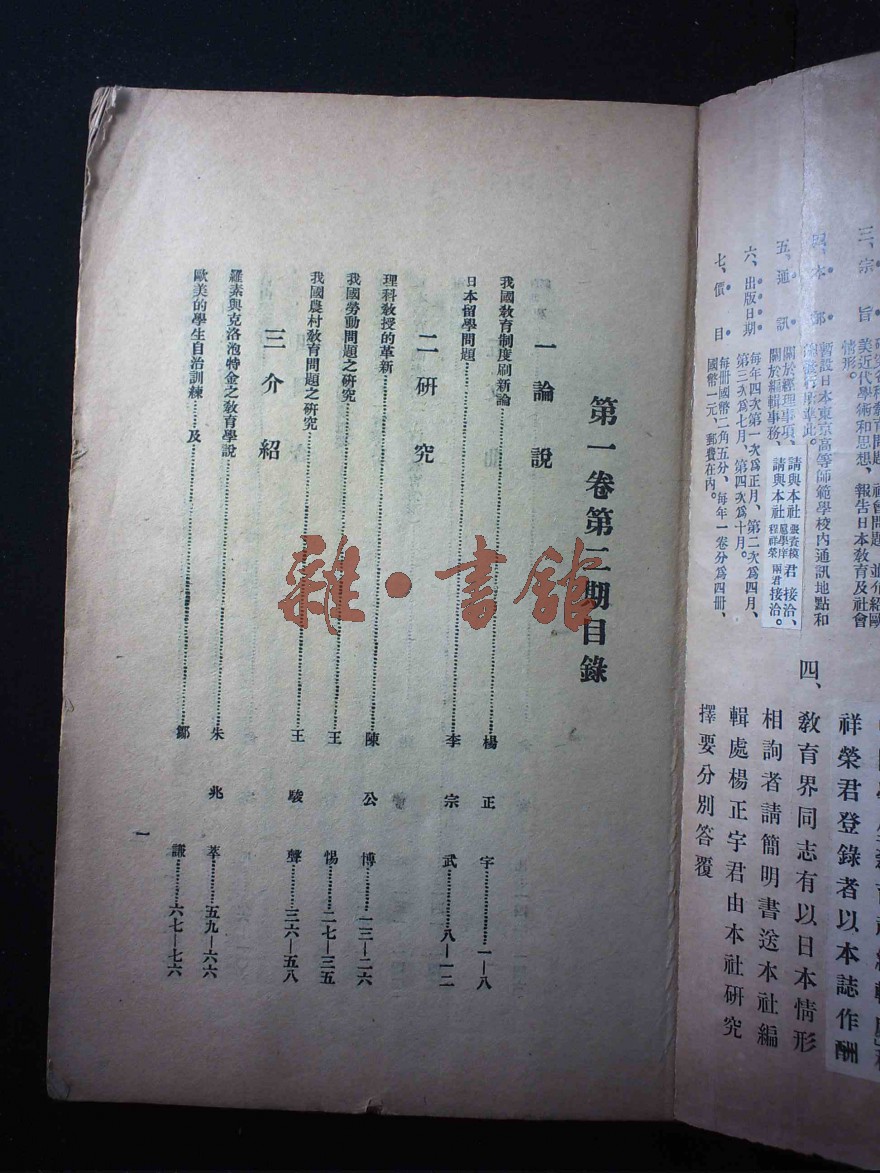 三、宗 旨 研究各種教育問題、社會問題、並介紹歐
美近代學術和思想、報告日本教育及社會
情形。
四、本 部 暫設日本東京高等師範學校內通訊地點和
發行所準此。
五、通 訊 關於經理事項、請與本社張資模君接洽、
關於編輯事務、請與本社 程祥榮兩君接洽。
六、出版日期 每年四次第一次爲正月、第二次爲四月、
第三次爲七月、第四次爲十月。
七、價 目 每冊國幣二角五分、每年一卷分爲四冊、
國幣一元、郵費在內。
祥榮君登錄者以本誌作酬
四、教育界同志有以日本情形
相詢者請簡明書送本社編
輯處楊正宇君由本社研究
擇要分別答覆
第一卷第二期目錄
一論說
我國教育制度刷新論……楊正宇……一—八
日本留學問題……李宗武……八—一二
二研究
理科教授的革新……陳公博……一三—二六
我國勞動問題之研究……王惕……二七—三五
我國農村教育問題之研究……王駿聲……三六—五八
三介紹
羅素與克洛泡特金之教育學說……朱兆萃……五九—六六
歐美的學生自治訓練……及……鄒謙……六七—七六
一
雜·書館